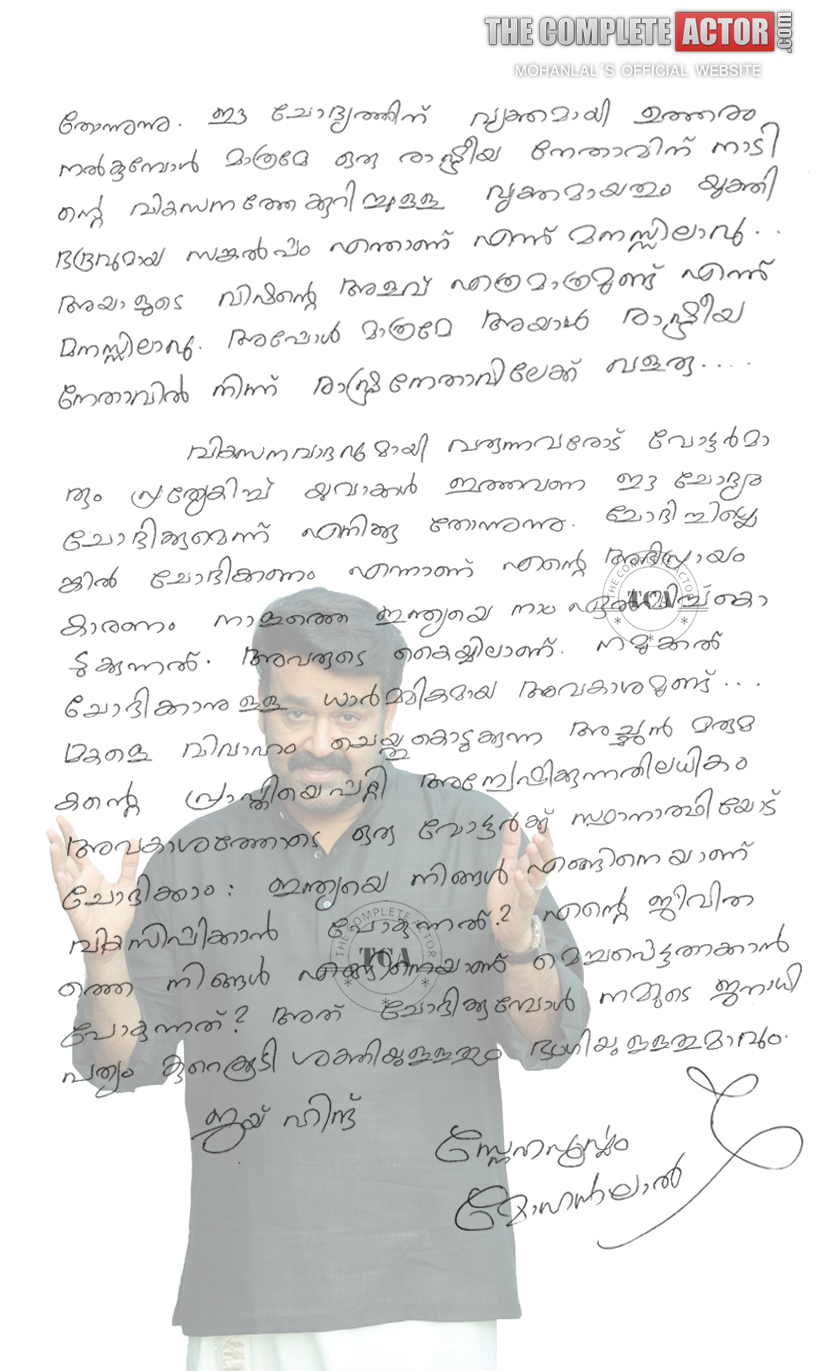 THE COMPLETE ACTOR.com
MOHANLAL'S OFFICIAL WEBSITE
തോന്നുന്നു. ഈ ചോദ്യത്തിന് വ്യക്തമായി ഉത്തരം
നൽകുമ്പോൾ മാത്രമേ ഒരു രാഷ്ട്രീയ നേതാവിന് നാടി
ന്റെ വികസനത്തേക്കുറിച്ചുള്ള വ്യക്തമായതും യുക്തി
ഭദ്രവുമായ സങ്കൽപ്പം എന്താണ് എന്ന് മനസ്സിലാവൂ..
അയാളുടെ വിഷന്റെ അളവ് എത്രമാത്രമുണ്ട് എന്ന്
മനസ്സിലാവൂ. അപ്പോൾ മാത്രമേ അയാൾ രാഷ്ട്രീയ
നേതാവിൽ നിന്ന് രാഷ്ട്രനേതാവിലേക്ക് വളരൂ....
വികസനവാദവുമായി വരുന്നവരോട് വോട്ടർമാ
രും പ്രത്യേകിച്ച് യുവാക്കൾ ഇത്തവണ ഈ ചോദ്യം
ചോദിക്കുമെന്ന് എനിക്കു തോന്നുന്നു. ചോദിച്ചില്ലെ
ങ്കിൽ ചോദിക്കണം എന്നാണ് എന്റെ അഭിപ്രായം
കാരണം നാളത്തെ ഇന്ത്യയെ നാം ഏൽപ്പിച്ച്കൊ
ടുക്കുന്നത്. അവരുടെ കൈയ്യിലാണ്. നമുക്കത്
ചോദിക്കാനുള്ള ധാർമ്മികമായ അവകാശമുണ്ട്...
മകളെ വിവാഹം ചെയ്തുകൊടുക്കുന്ന അച്ഛൻ മരുമ
കന്റെ പ്രാപ്തിയെപറ്റി അന്വേഷിക്കുന്നതിലധികം
അവകാശത്തോടെ ഒരു വോട്ടർക്ക് സ്ഥാനാർത്ഥിയോട്
ചോദിക്കാം: ഇന്ത്യയെ നിങ്ങൾ എങ്ങിനെയാണ്
വികസിപ്പിക്കാൻ പോകുന്നത്.? എന്റെ ജീവിത
ത്തെ നിങ്ങൾ എങ്ങിനെയാണ് മെച്ചപ്പെടുത്താൻ
പോകുന്നത്? അത് ചോദിക്കുമ്പോൾ നമ്മുടെ ജനാധി
പത്യം കുറെക്കൂടി ശക്തിയുള്ളതും ഭംഗിയുള്ളതുമാവും.
ജയ് ഹിന്ദ്
സ്നേഹപൂർവ്വം
മോഹൻലാൽ
THE COMPLETE ACTOR
TCA
THE COMPLETE ACTOR
TCA